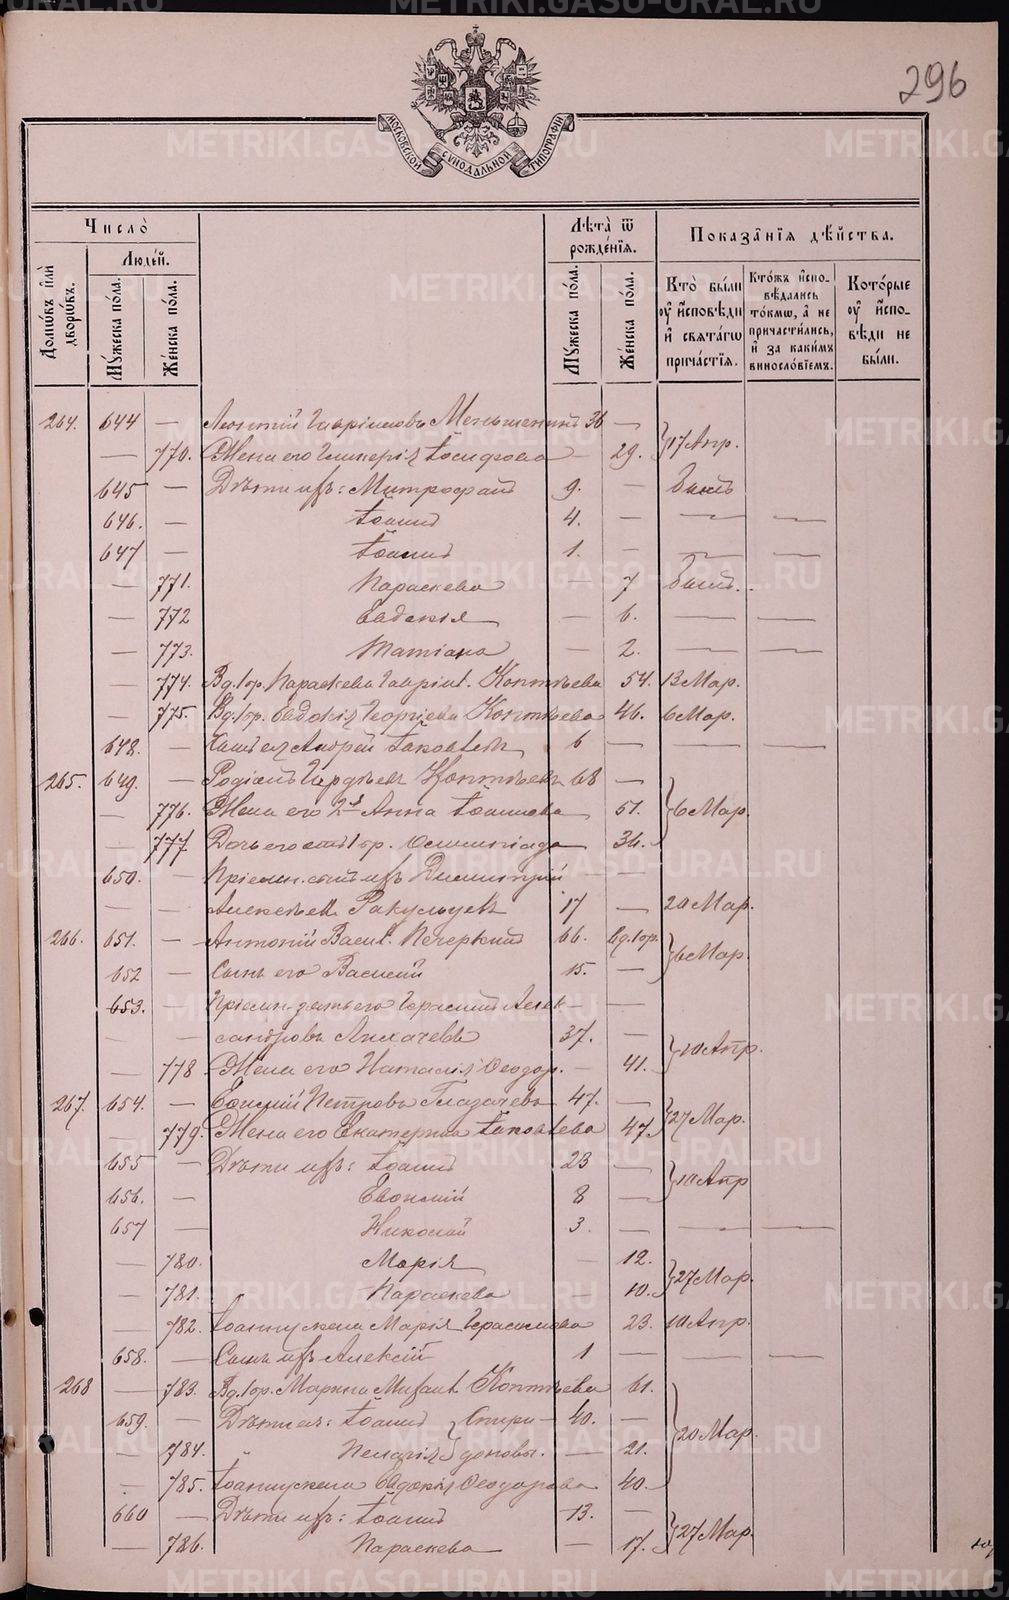 296
МОСКОВСКОЙ СѴНОДАЛЬНОЙ ТИПОГРАФІИ
Число̀
Люде́й.
Домѡ́въ и҆лѝ дворѡ́въ.
Мꙋ́жеска по́ла.
Же́нска по́ла.
Лѣ́та ѿ рожде́нїя.
Мꙋ́жеска по́ла.
Же́нска по́ла.
Показа́нїя дѣ́йства.
Кто̀ бы́ли оу҆ и҆сповѣ́ди и҆ свята́гѡ прича́стїя.
Кто́жъ и҆сповѣ́дались то́кмѡ, а҆ не причасти́лись, и҆ за каки́мъ винослѡ́вїемъ.
Кото́рые оу҆ и҆сповѣ́ди не бы́ли.
264. 644 — Леонтій Гаврииловъ Меньшенинъ 36 —
— 770. Жена его Гликерія Іосифова — 29. } 17 Апр.
645 — Дѣти ихъ: Митрофанъ 9. — былъ
646. — Іоаннъ 4. — — —
647 — Іоаннъ 1. — — —
— 771. Параскева — 7 была.
— 772 Евдокія — 6. — —
— 773. Татіана — 2. — —
— 774. Вд. Параскева Гавріил. Коптѣева 54. 13 Мар.
— 775. Вд. Евдокія Георгіева Коптѣева 46. 6 Мар.
648. — Андрей Іаковлевъ 6 — — —
265. 649. — Родіонъ Коптѣевъ 68 —
— 776. Жена его 2я Анна Іоаннова 51. } 6 Мар.
— 777. Дочь его Олимпіада 36.
650. — Пріемн. сынъ ихъ Димитрій — —
— — Алексѣевъ Ракульцевъ 17 — 20 Мар.
266. 651. — Антоній Васил. Печеркинъ 66. вд. } 6 Мар.
652 — Сынъ его Василій 15. —
653. — Пріемн. зять его Герасимъ Алек- —
— — сандровъ Лихачевъ 37. —
— 778 Жена его Наталія Ѳеодор. — 41. } 10 Апр.
267. 654. — Евѳимій Петровъ Глазачевъ 47. —
— 779. Жена его Екатерина Іаковлева 47. } 27 Мар.
655 — Дѣти ихъ: Іоаннъ 23 —
656. — Евѳимій 8 — } 10 Апр
657 — Николай 3. — — —
— 780. Марія — 12.
— 781. Параскева — 10. } 27 Мар.
— 782. Іоанну жена Марія Герасимова 23. 10 Апр.
658. — Сынъ ихъ Алексій 1 — — —
268 — 783. Вд. Марина Михаил. Коптѣева 61.
659. — Дѣти ея: Іоаннъ } Спири- 40. —
— 784. Пелагія } доновы. — 21. } 20 Мар.
— 785. Іоанну жена Евдокія Ѳеодорова 40.
660 — Дѣти ихъ: Іоаннъ 13. —
— 786. Параскева — 17. } 27 Мар.
METRIKI.GASO-URAL.RU